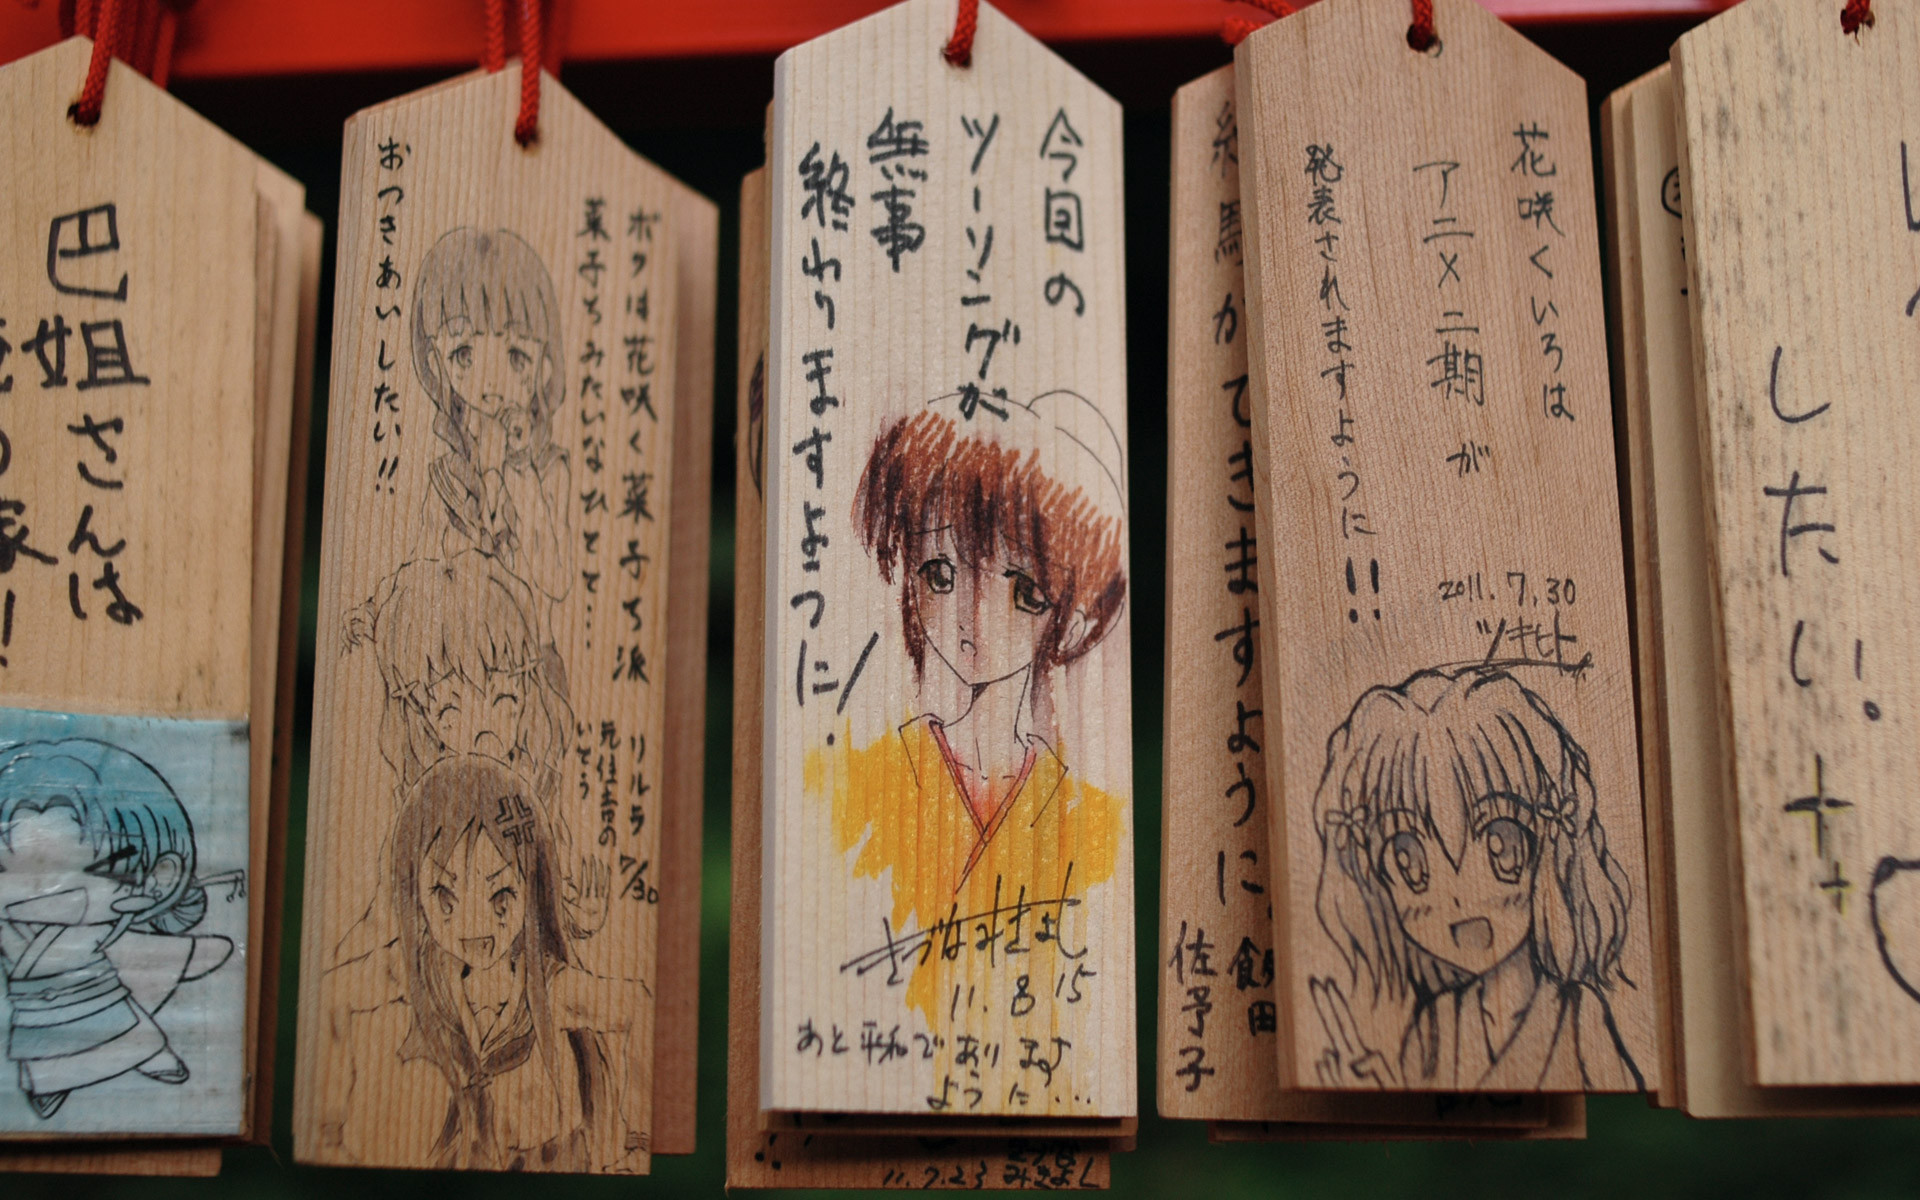 巴姐さんは
ボクは花咲く菜子ち派
菜子ちみたいなひとと…
おつきあいしたい!!
7/30
今回の
ツーリングが
無事
終わりますように!
11.8.15
あと平和であります
ように...
絵馬ができますように。
飯田
佐予子
花咲くいろは
アニメ二期が
発表されますように!!
2011.7.30
ツキヒト
したい!
11.7.23 みきよし